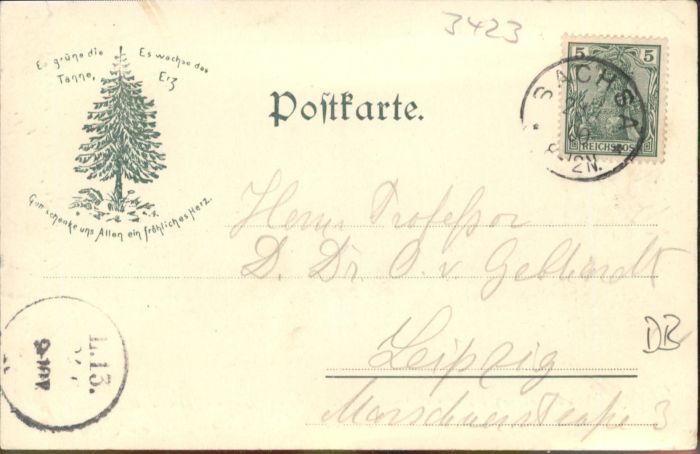 3423
Es grüne die
Tanne,
Es wachse das
Erz
Gott schenke uns Allen ein fröhliches Herz.
Postkarte.
5 5
REICHSPOST
SACHSA
8-12N.
Herrn Professor
D. Dr. O. v. Gebhardt
Leipzig
Marschnerstraße 3
DR
L.13.